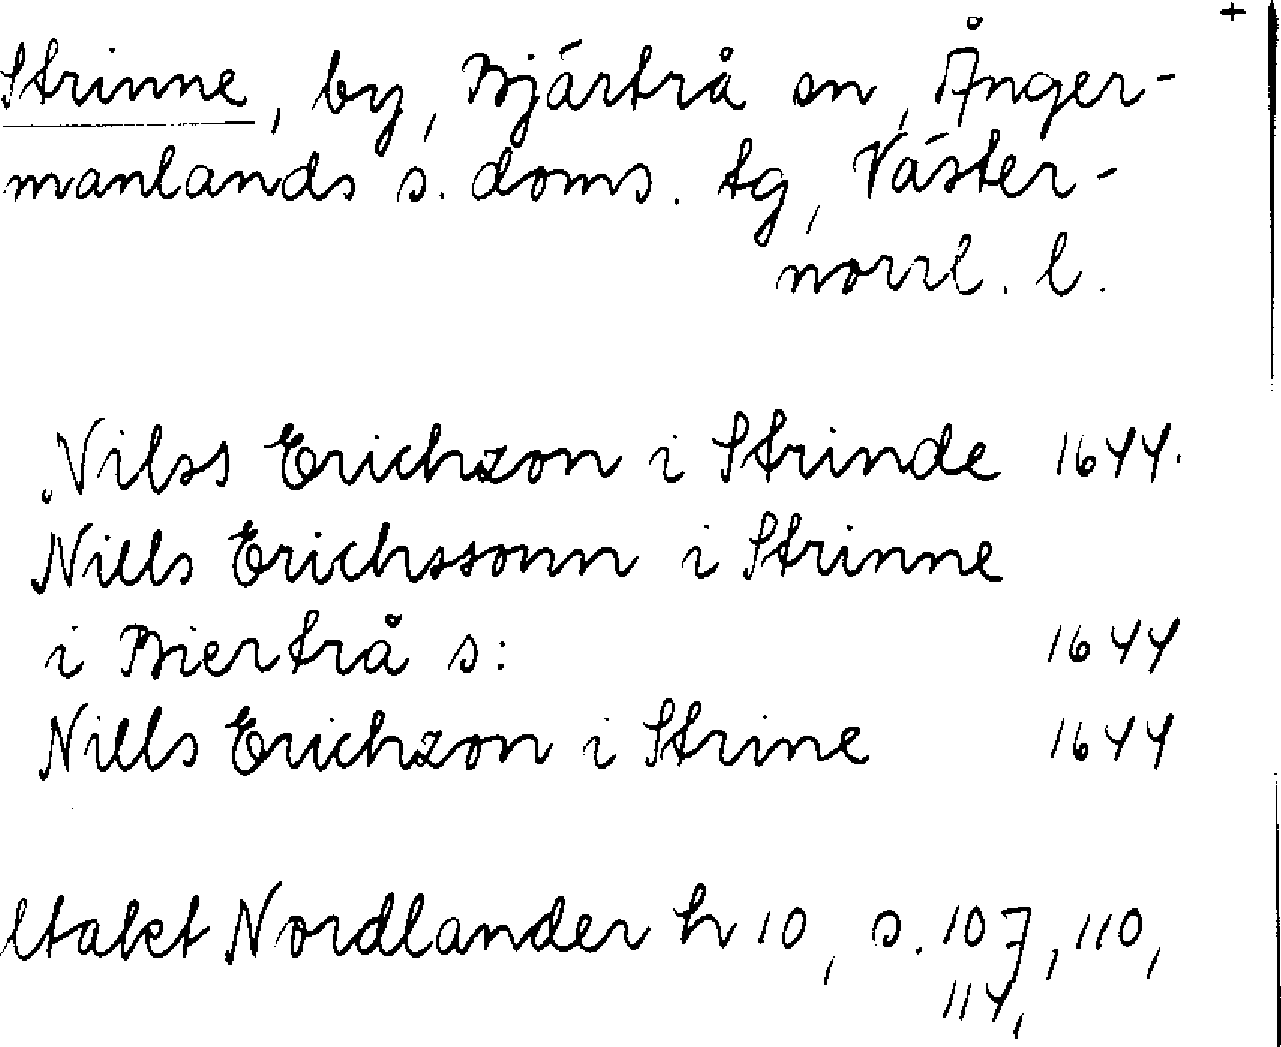 +
Strinne, by, Bjärtrå sn, Ånger-
manlands s. doms. tg, Väster-
norrl. l.
Nilss Erichzon i Strinde 1644.
Nills Erichssonn i Strinne
i Biertrå s: 1644
Nills Erichzon i Strine 1644
Nordlander h 10, s. 107, 110,
114,